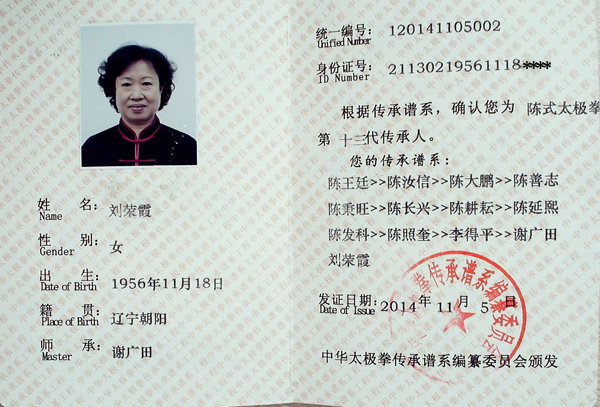 姓 名: 刘荣霞
Name
性 别: 女
Gender
出 生: 1956年11月18日
Date of Birth
籍 贯: 辽宁朝阳
Place of Birth
师 承: 谢广田
Master
统一编号: 120141105002
Unified Number
身份证号: 21130219561118***
ID Number
根据传承谱系，确认您为 陈式太极拳
第 十三代传承人。
您的传承谱系：
陈王廷>>陈汝信>>陈大鹏>>陈善志
陈秉旺>>陈长兴>>陈耕耘>>陈延熙
陈发科>>陈照奎>>李得平>>谢广田
刘荣霞
发证日期: 2014年 11月 5日
Date of Issue
拳传承谱系编纂委员会
中华太极拳传承谱系编纂委员会颁发